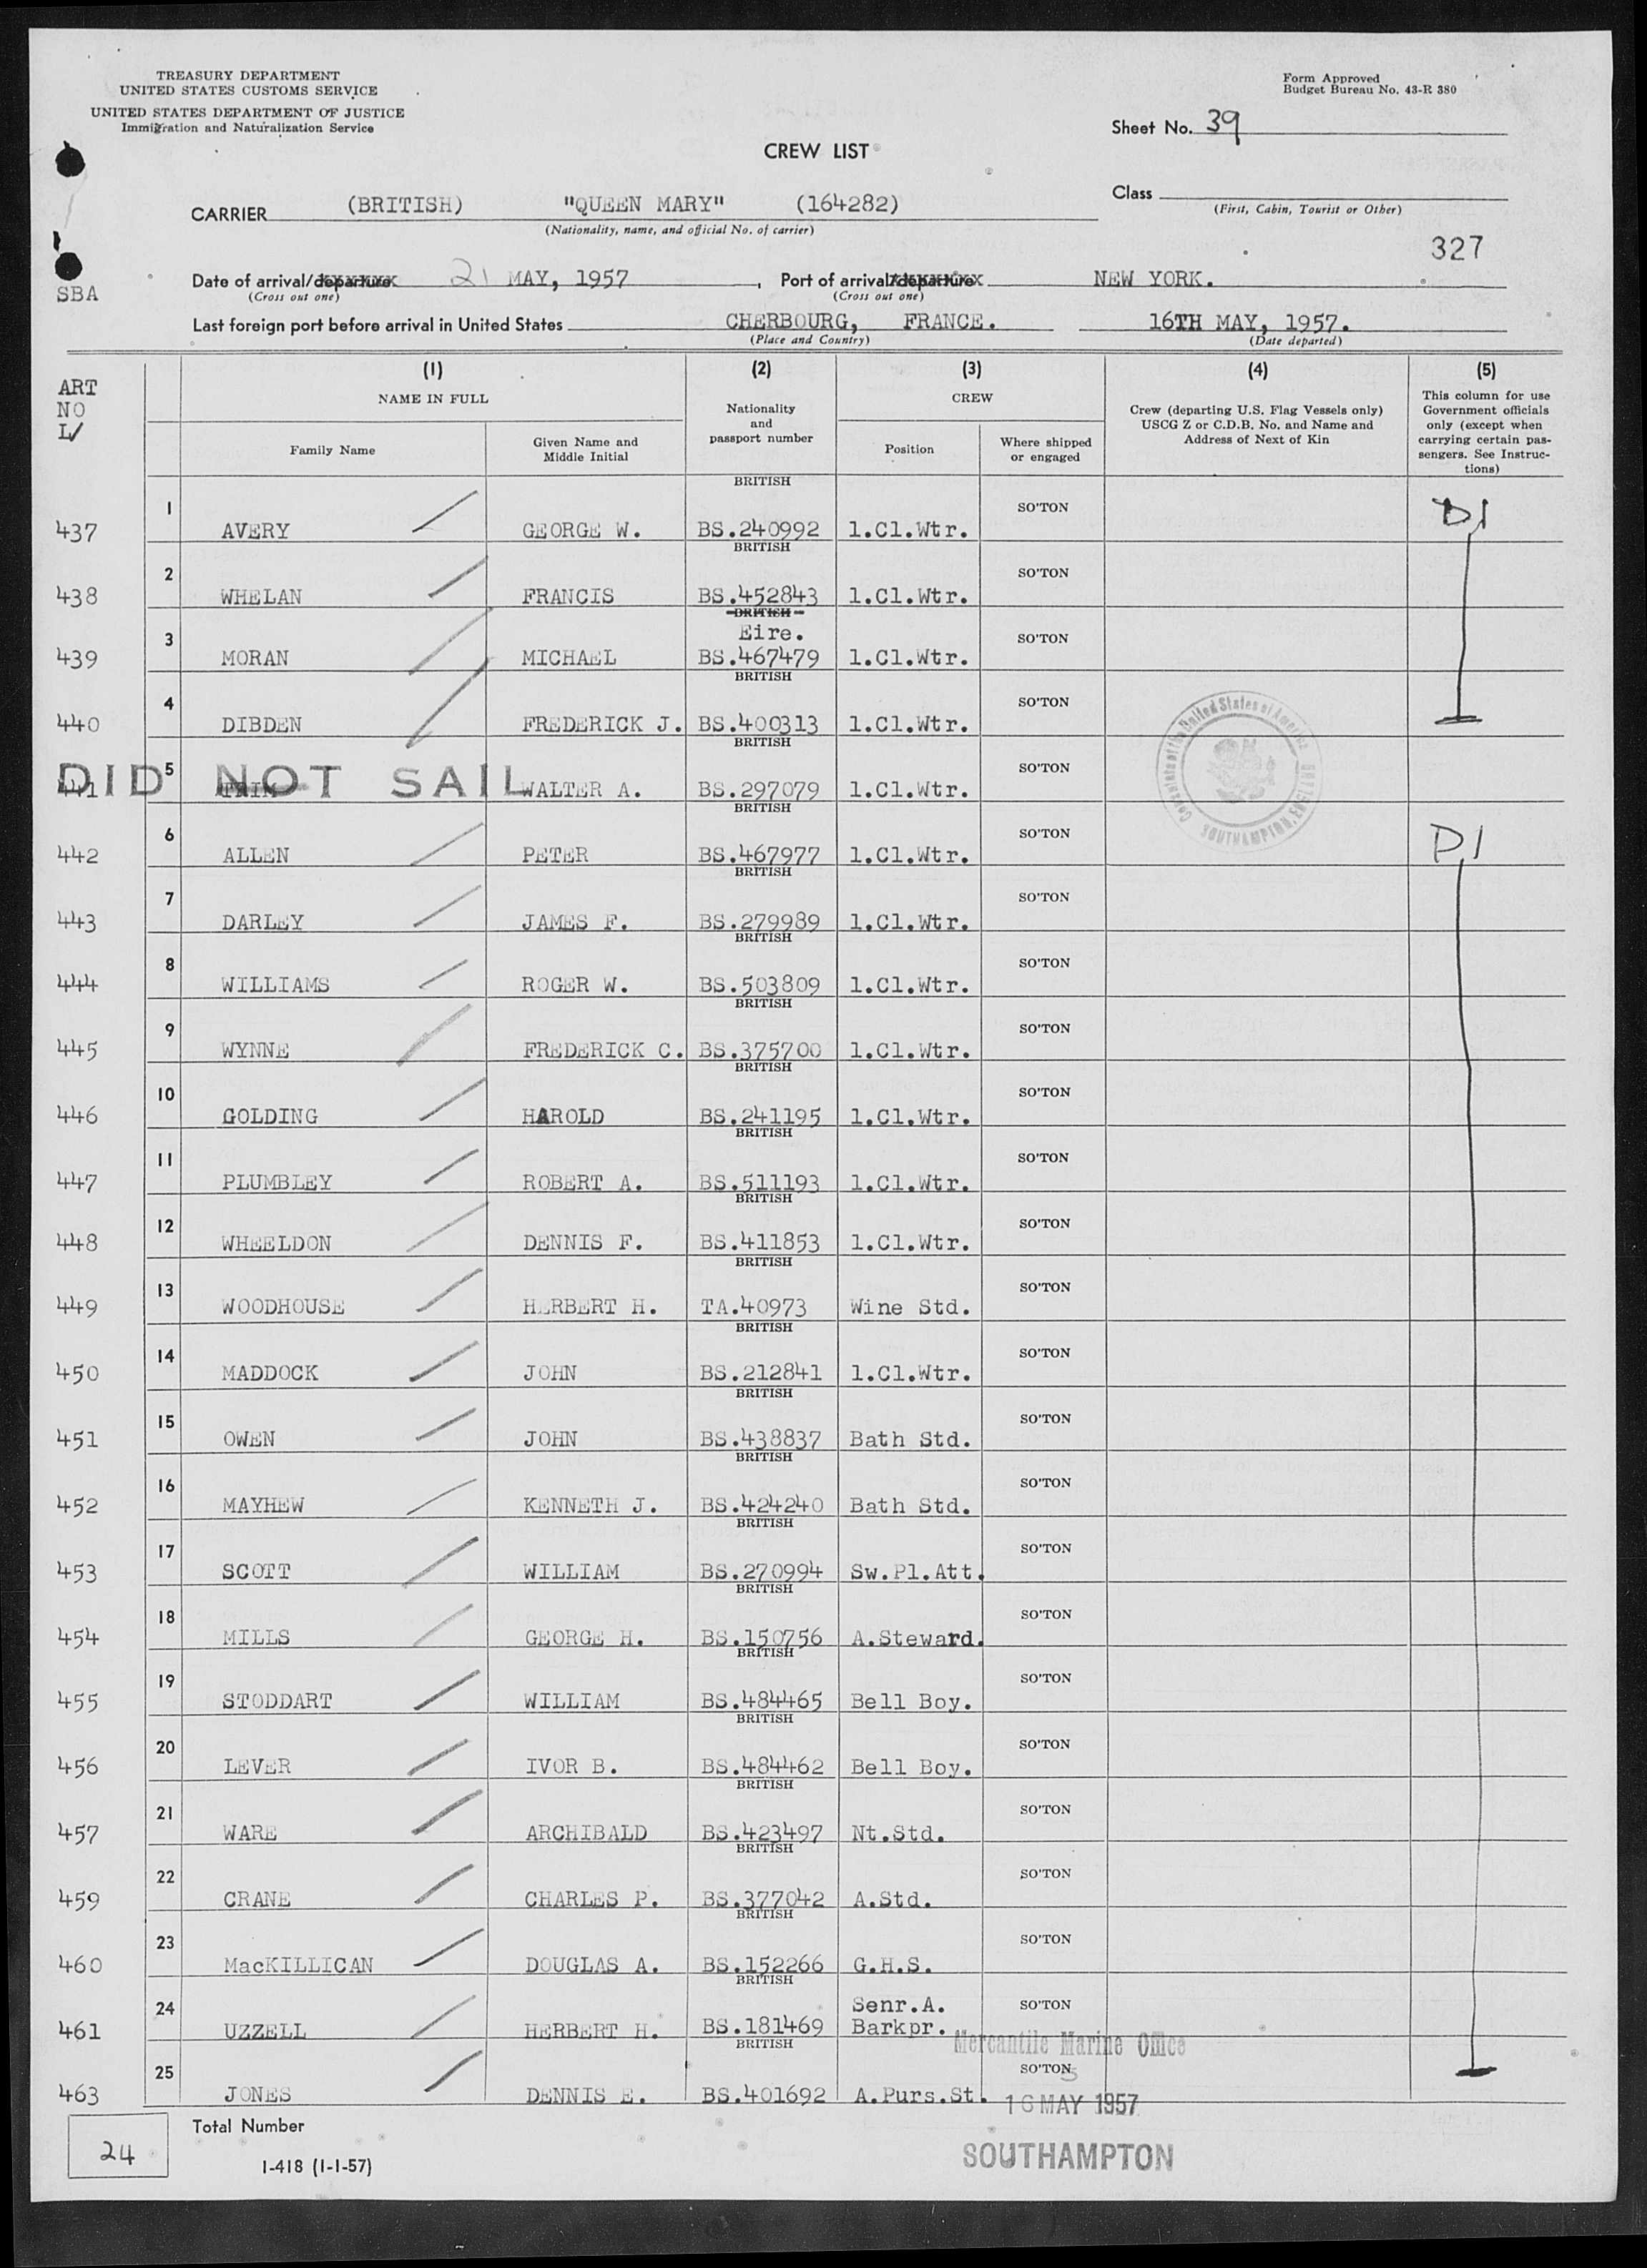 TREASURY DEPARTMENT
UNITED STATES CUSTOMS SERVICE
UNITED STATES DEPARTMENT OF JUSTICE
Immigration and Naturalization Service
Form Approved
Budget Bureau No. 43-R 380
Sheet No. 39
CREW LIST
Class
(First, Cabin, Tourist or Other)
CARRIER (BRITISH) "QUEEN MARY" (164282)
(Nationality, name, and official No. of carrier)
327
SBA
Date of arrival/departure 21 MAY, 1957, Port of arrival/departure NEW YORK.
(Cross out one) (Cross out one)
Last foreign port before arrival in United States CHERBOURG, FRANCE. 16TH MAY, 1957.
(Place and Country) (Date departed)
ART
NO
L/
(1) (2) (3) (4) (5)
NAME IN FULL
Family Name
Given Name and
Middle Initial
Nationality
and
passport number
CREW
Position
Where shipped
or engaged
Crew (departing U.S. Flag Vessels only)
USCG Z or C.D.B. No. and Name and
Address of Next of Kin
This column for use
Government officials
only (except when
carrying certain pas-
sengers. See Instruc-
tions)
BRITISH
437 1 AVERY GEORGE W. BS.240992 1.Cl.Wtr. SO'TON D1
BRITISH
438 2 WHELAN FRANCIS BS.452843 1.Cl.Wtr. SO'TON
BRITISH
Eire.
439 3 MORAN MICHAEL BS.467479 1.Cl.Wtr. SO'TON
BRITISH
440 4 DIBDEN FREDERICK J. BS.400313 1.Cl.Wtr. SO'TON
BRITISH
DID NOT SAIL
441 5 WALTER A. BS.297079 1.Cl.Wtr. SO'TON
Consulate of the United States of America
SOUTHAMPTON,
BRITISH
442 6 ALLEN PETER BS.467977 1.Cl.Wtr. SO'TON D1
BRITISH
443 7 DARLEY JAMES F. BS.279989 1.Cl.Wtr. SO'TON
BRITISH
444 8 WILLIAMS ROGER W. BS.503809 1.Cl.Wtr. SO'TON
BRITISH
445 9 WYNNE FREDERICK C. BS.375700 1.Cl.Wtr. SO'TON
BRITISH
446 10 GOLDING HAROLD BS.241195 1.Cl.Wtr. SO'TON
BRITISH
447 11 PLUMBLEY ROBERT A. BS.511193 1.Cl.Wtr. SO'TON
BRITISH
448 12 WHEELDON DENNIS F. BS.411853 1.Cl.Wtr. SO'TON
BRITISH
449 13 WOODHOUSE HERBERT H. TA.40973 Wine Std. SO'TON
BRITISH
450 14 MADDOCK JOHN BS.212841 1.Cl.Wtr. SO'TON
BRITISH
451 15 OWEN JOHN BS.438837 Bath Std. SO'TON
BRITISH
452 16 MAYHEW KENNETH J. BS.424240 Bath Std. SO'TON
BRITISH
453 17 SCOTT WILLIAM BS.270994 Sw.Pl.Att. SO'TON
BRITISH
454 18 MILLS GEORGE H. BS.150756 A.Steward. SO'TON
BRITISH
455 19 STODDART WILLIAM BS.484465 Bell Boy. SO'TON
BRITISH
456 20 LEVER IVOR B. BS.484462 Bell Boy. SO'TON
BRITISH
457 21 WARE ARCHIBALD BS.423497 Nt.Std. SO'TON
BRITISH
459 22 CRANE CHARLES P. BS.377042 A.Std. SO'TON
BRITISH
460 23 MacKILLICAN DOUGLAS A. BS.152266 G.H.S. SO'TON
BRITISH
Senr.A.
461 24 UZZELL HERBERT H. BS.181469 Barkpr. SO'TON
BRITISH
Mercantile Marine Office
463 25 JONES DENNIS E. BS.401692 A.Purs.St. SO'TON
16 MAY 1957
SOUTHAMPTON
24
Total Number
I-418 (1-1-57)